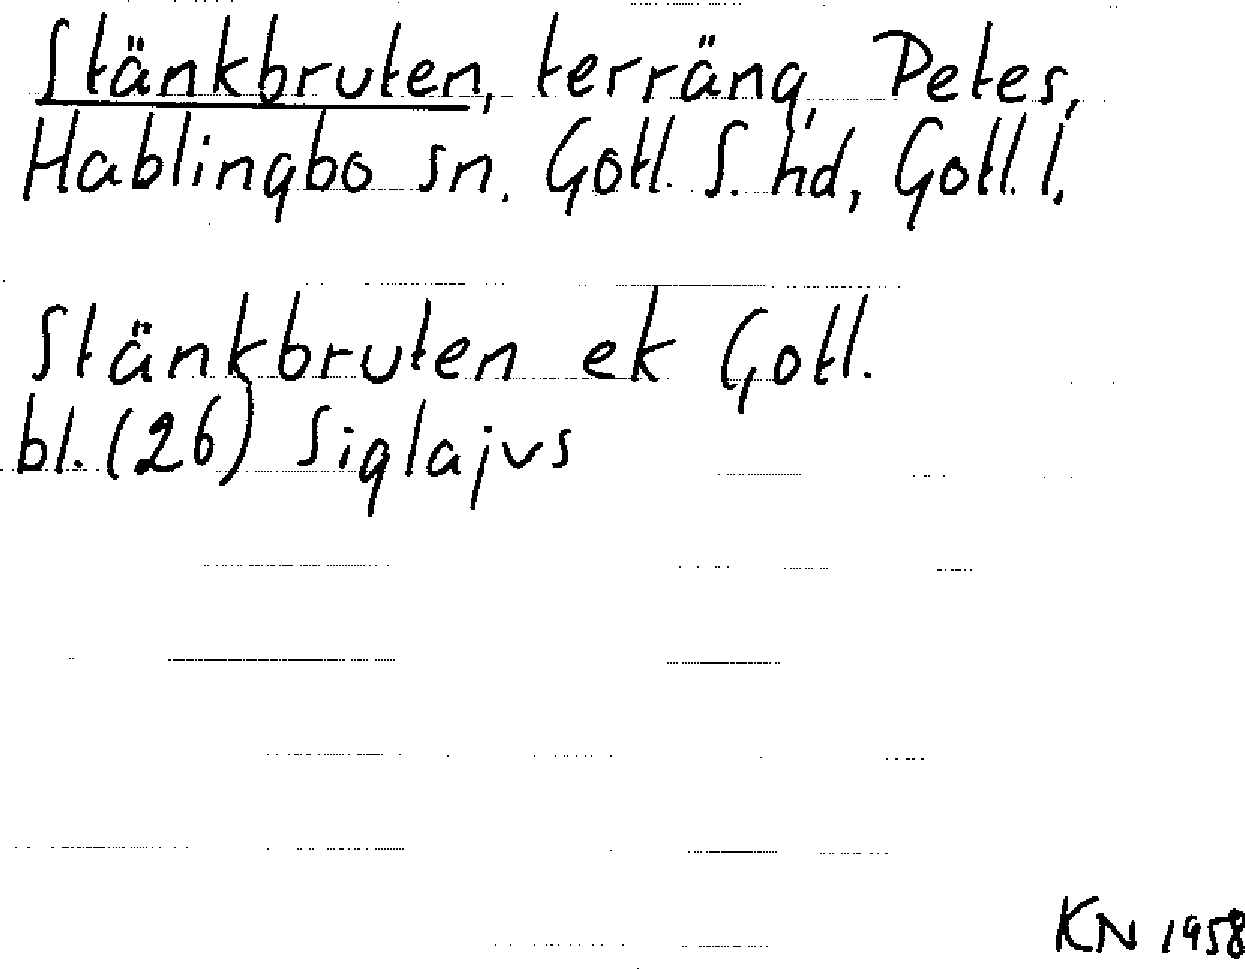 Stänkbruten, terräng, Petes,
Hablingbo sn. Gotl. S. hd, Gotl. l.
Stänkbruten ek Gotl.
bl. (26) Siglajvs
KN 1958